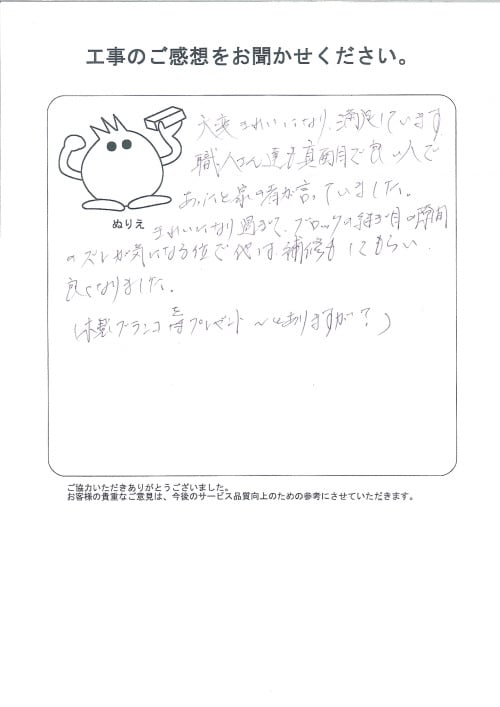 工事のご感想をお聞かせください。
大変きれいになり、満足しています
職人さん達も真面目で良い人で
あったと家の者が言っていました。
ぬりえ
きれいになり過ぎて、ブロックの継ぎ目の隙間
のズレが気になる位で他は、補修もしてもらい、
良くなりました。
(木製ブランコ プレゼント 〜とありますが?)
ご協力いただきありがとうございました。
お客様の貴重なご意見は、今後のサービス品質向上のための参考にさせていただきます。